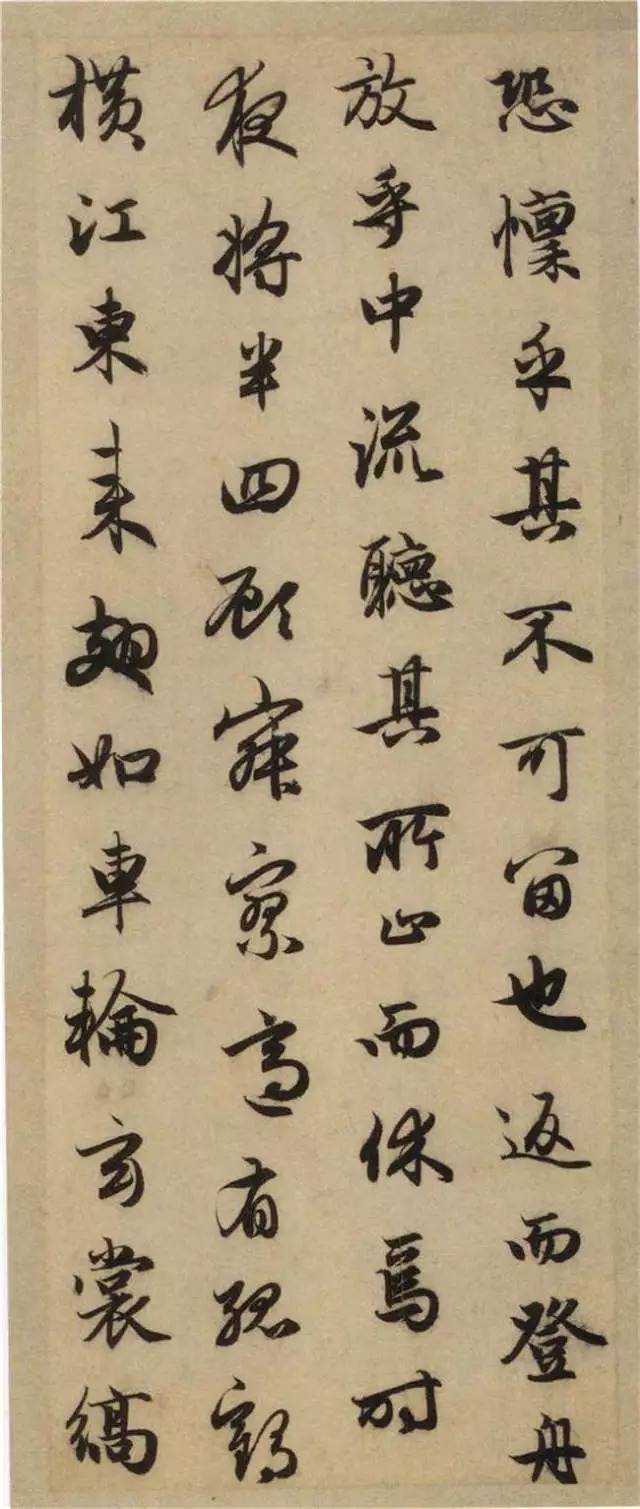 恐懍乎其不可留也返而登舟
放乎中流聽其所止而休焉時
夜將半四顧寂寥適有孤鶴
橫江東来翅如車輪玄裳縞